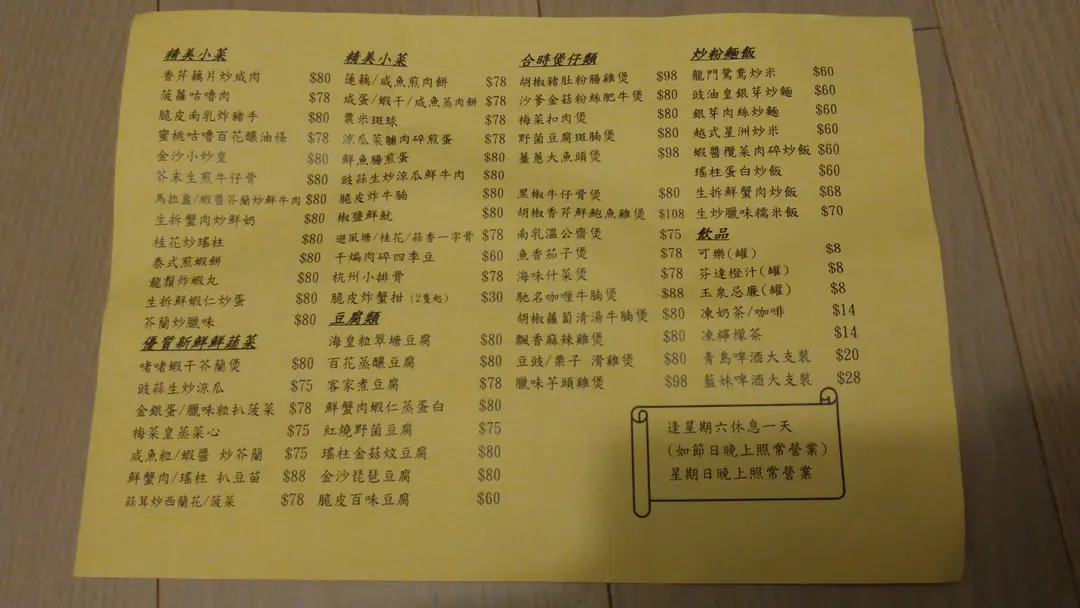 精美小菜
香芹藕片炒咸肉 $80
菠蘿咕嚕肉 $78
脆皮南乳炸豬手 $80
蜜桃咕嚕百花釀油條 $78
金沙小炒皇 $80
芥末生煎牛仔骨 $80
馬拉盞/蝦醬芥蘭炒鮮牛肉 $80
生拆蟹肉炒鮮奶 $80
桂花炒瑤柱 $80
泰式煎蝦餅 $80
龍鬚炸蝦丸 $80
生拆鮮蝦仁炒蛋 $80
芥蘭炒臘味 $80
優質新鮮鮮蔬菜
啫啫蝦干芥蘭煲 $80
豉蒜生炒涼瓜 $75
金銀蛋/臘味粒扒菠菜 $78
梅菜皇蒸菜心 $75
咸魚粒/蝦醬 炒芥蘭 $75
鮮蟹肉/瑤柱 扒豆苗 $88
蒜茸炒西蘭花/菠菜 $78
精美小菜
蓮藕/咸魚煎肉餅 $78
咸蛋/蝦干/咸魚蒸肉餅 $78
粟米斑球 $78
涼瓜菜脯肉碎煎蛋 $78
鮮魚腸煎蛋 $80
豉蒜生炒涼瓜鮮牛肉 $80
脆皮炸牛腩 $80
椒鹽鮮魷 $80
避風塘/桂花/蒜香一字骨 $78
干煸肉碎四季豆 $60
杭州小排骨 $78
脆皮炸蟹拑(2隻起) $30
豆腐類
海皇粒翠塘豆腐 $80
百花蒸釀豆腐 $80
客家煮豆腐 $78
鮮蟹肉蝦仁蒸蛋白 $80
紅燒野菌豆腐 $75
瑤柱金菇炆豆腐 $80
金沙琵琶豆腐 $80
脆皮百味豆腐 $60
合時煲仔類
胡椒豬肚粉腸雞煲 $98
沙爹金菇粉絲肥牛煲 $80
梅菜扣肉煲 $80
野菌豆腐斑腩煲 $80
薑蔥大魚頭煲 $98
黑椒牛仔骨煲 $80
胡椒香芹鮮鮑魚雞煲 $108
南乳溫公齋煲 $75
魚香茄子煲 $78
海味什菜煲 $78
馳名咖喱牛腩煲 $88
胡椒蘿蔔清湯牛腩煲 $80
飄香麻辣雞煲 $80
豆豉/栗子 滑雞煲 $80
臘味芋頭雞煲 $98
炒粉麵飯
龍門鴛鴦炒米 $60
豉油皇銀芽炒麵 $60
銀芽肉絲炒麵 $60
越式星洲炒米 $60
蝦醬欖菜肉碎炒飯 $60
瑤柱蛋白炒飯 $60
生拆鮮蟹肉炒飯 $68
生炒臘味糯米飯 $70
飲品
可樂(罐) $8
芬達橙汁(罐) $8
玉泉忌廉(罐) $8
凍奶茶/咖啡 $14
凍檸檬茶 $14
青島啤酒大支裝 $20
藍妹啤酒大支裝 $28
逢星期六休息一天
(如節日晚上照常營業)
星期日晚上照常營業